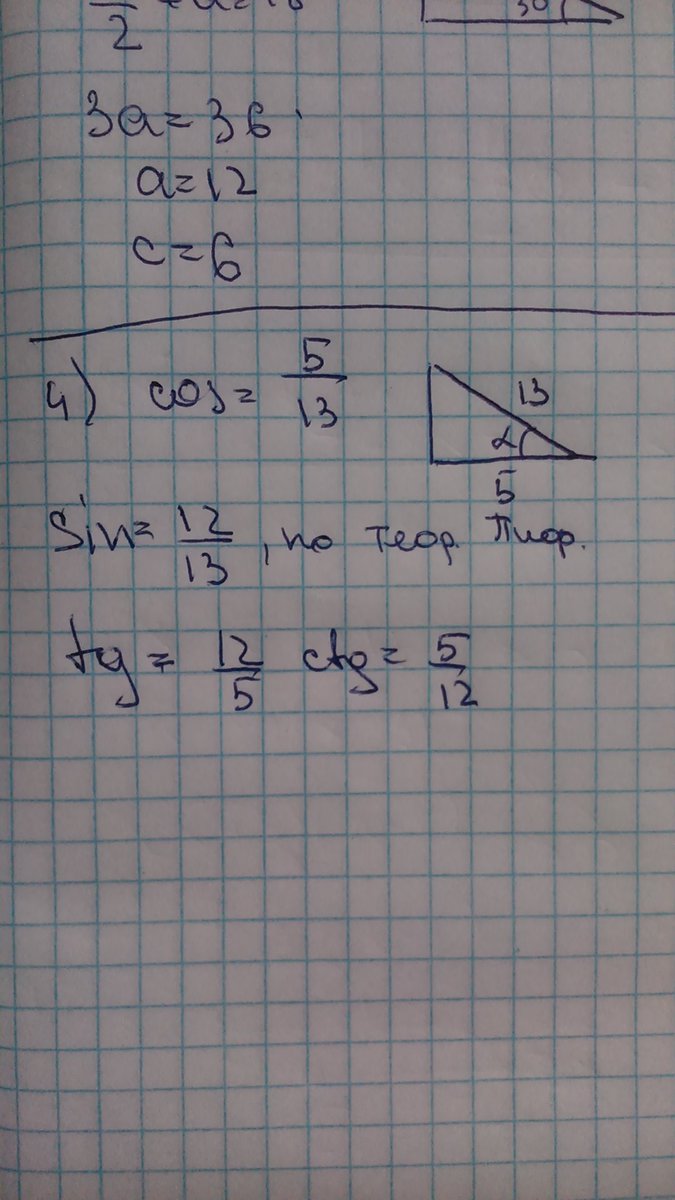 2
30
3a = 36
a = 12
c = 6
4) cos = 5/13
13
α
5
Sin = 12/13, по теор. Пифор.
tg = 12/5 ctg = 5/12